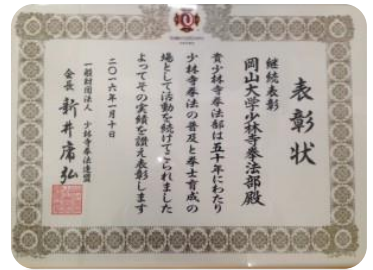 表彰状
継続表彰
岡山大学少林寺拳法部殿
貴少林寺拳法部は五十年にわたり
少林寺拳法の普及と拳士育成の
場として活動を続けてこられました
よってその実績を讃え表彰します
二〇一六年一月十日
一般財団法人 少林寺拳法連盟
会長 新井庸弘